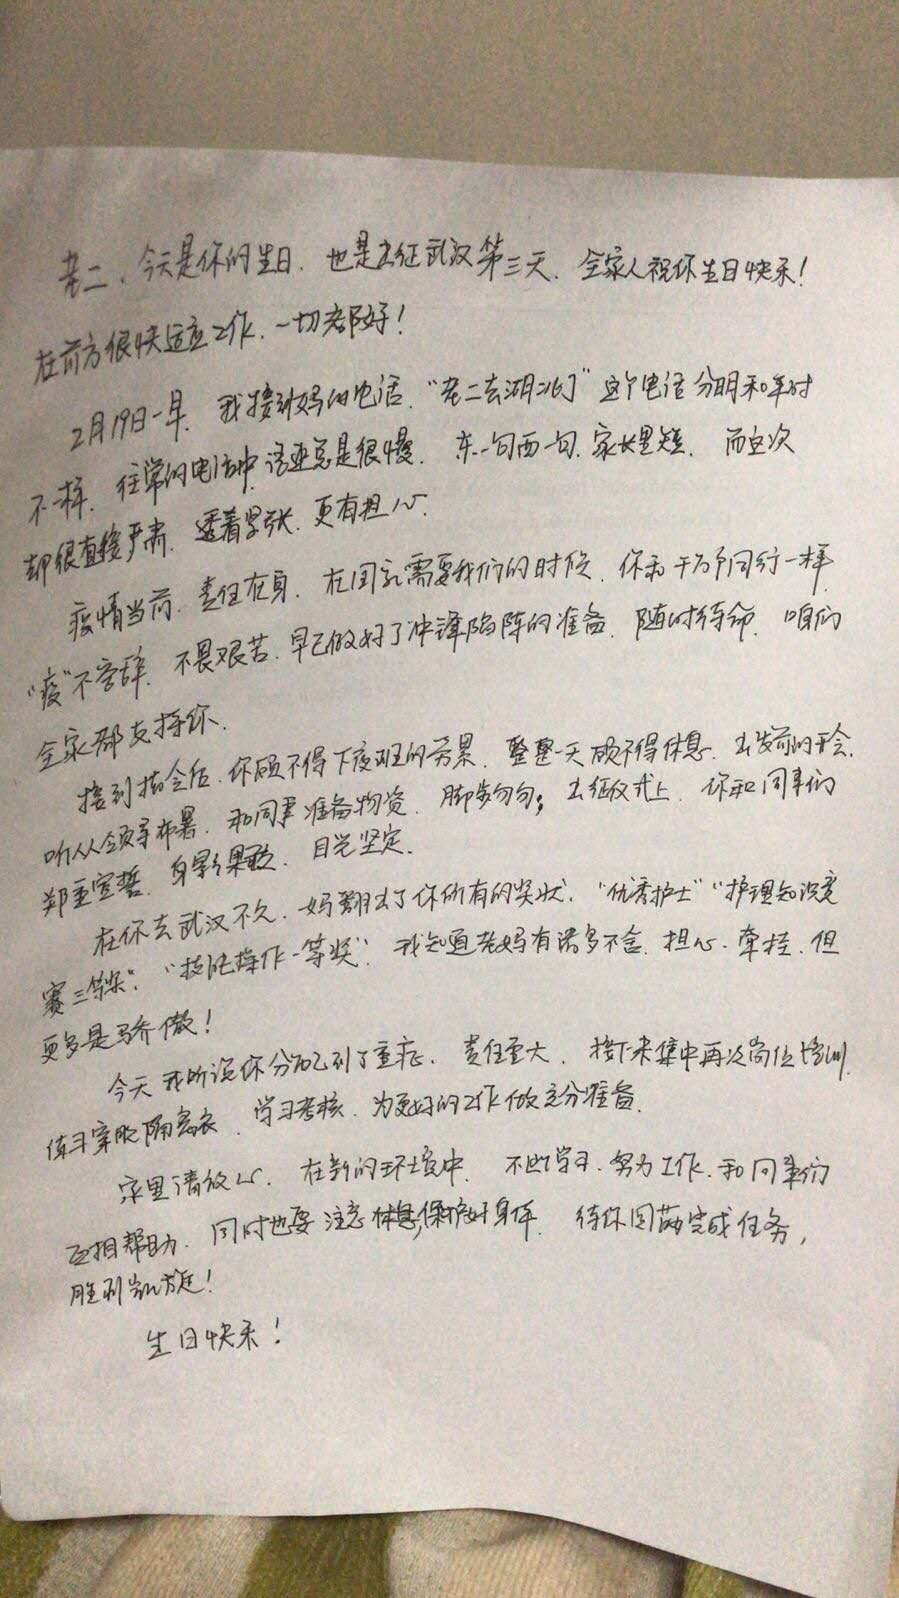 老二、今天是你的生日、也是出征武汉第三天、全家人祝你生日快乐！
在前方很快适应工作、一切都好！
2月19日一早、我接到妈的电话、“老二去湖北了”这个电话分明和平时
不一样、往常的电话中、语速总是很慢、东一句西一句、家长里短、而这次
却很直接严肃、透着紧张、更有担心、
疫情当前、责任在身、在国家需要我们的时候、你和千万个同行一样
“疫”不容辞、不畏艰苦、早已做好了冲锋陷阵的准备、随时待命、咱们
全家都支持你、
接到指令后、你顾不得下夜班的劳累、整整一天顾不得休息、出发前的开会、
听从领导布署、和同事准备物资、脚步匆匆；出征仪式上、你和同事们
郑重宣誓、身影果敢、目光坚定、
在你去武汉不久、妈翻出了你所有的奖状、“优秀护士”“护理知识竞
赛三等奖”、“技能操作一等奖”、我知道老妈有诸多不舍、担心、牵挂、但
更多是骄傲！
今天我听说你分配到了重症、责任重大、接下来集中再次岗位培训、
练习穿脱隔离衣、学习考核、为更好的工作做充分准备、
家里请放心、在新的环境中、不断学习、努力工作、和同事们
互相帮助、同时也要注意休息，保护好身体、待你圆满完成任务，
胜利凯旋！
生日快乐！